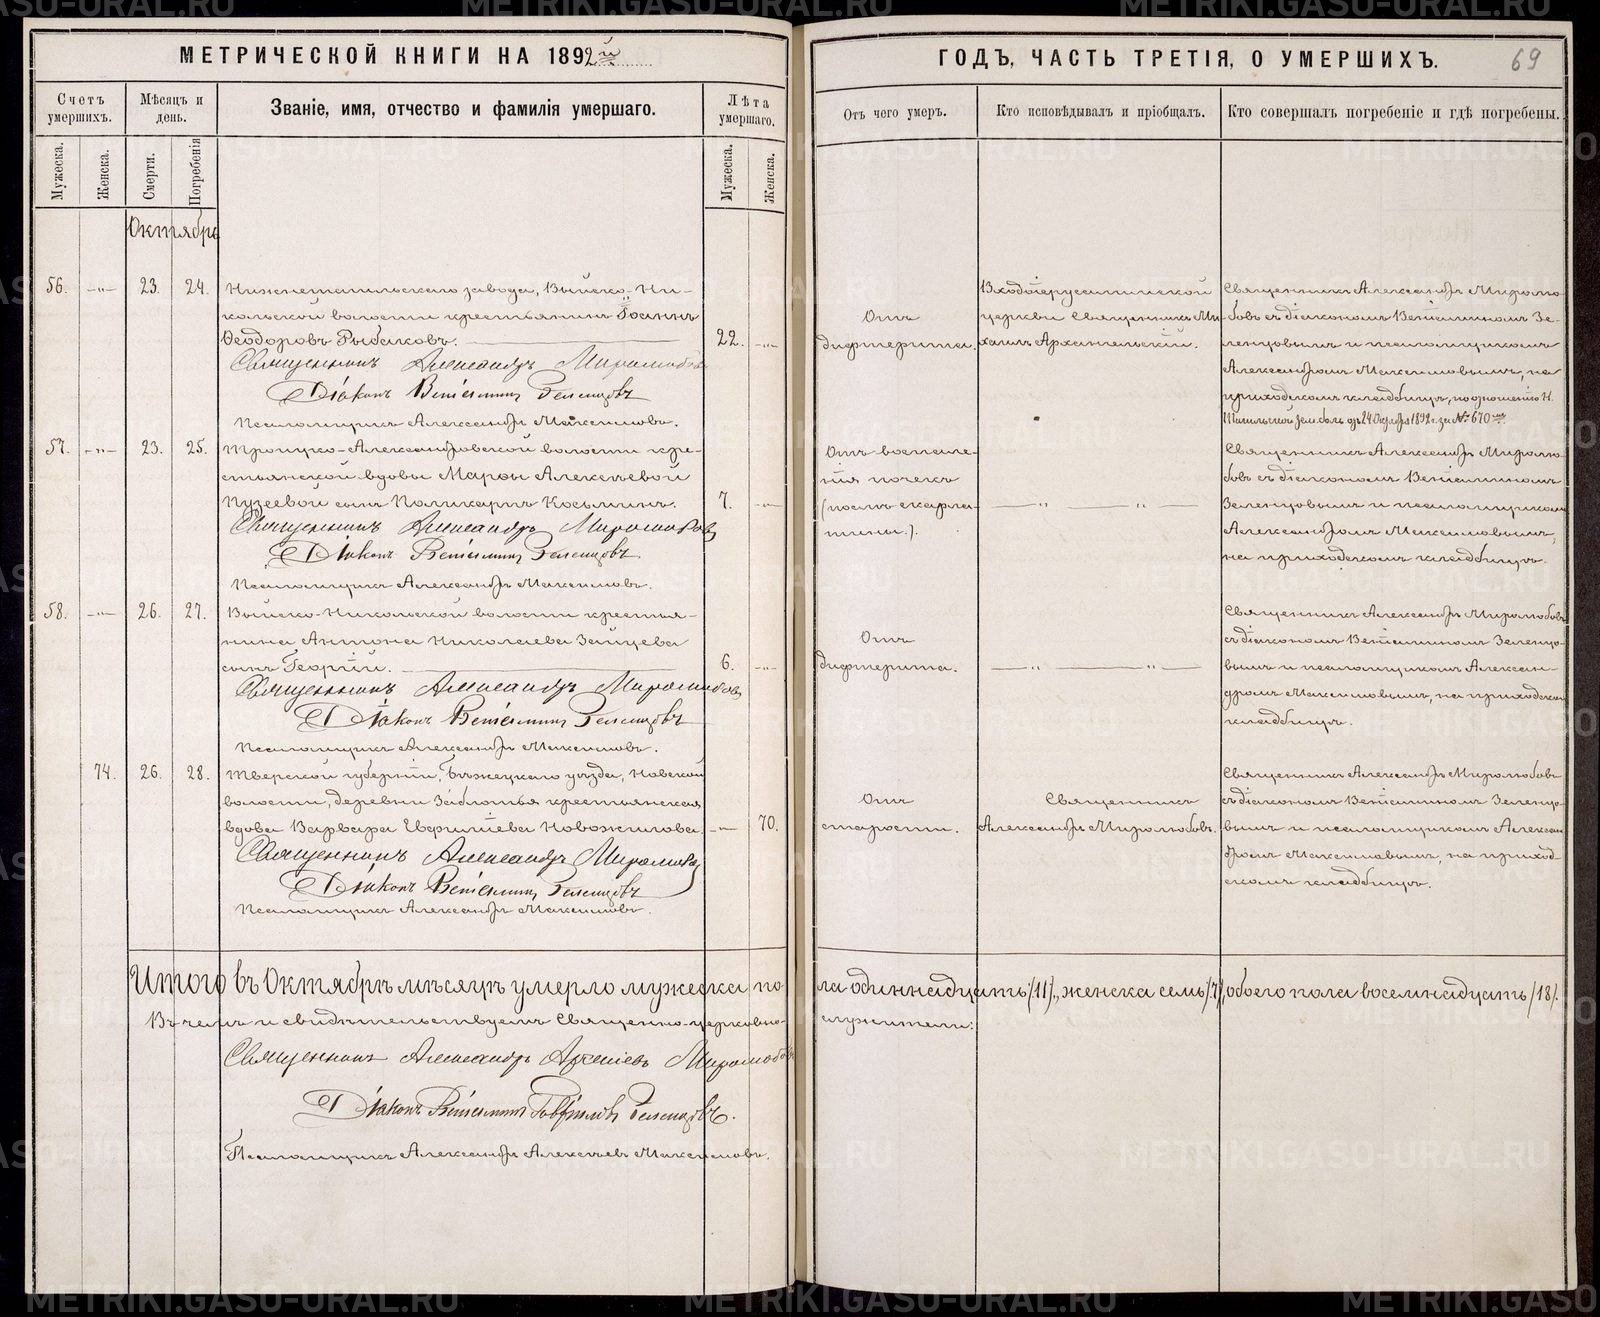 МЕТРИЧЕСКОЙ КНИГИ НА 1892й
Счетъ умершихъ.
Мѣсяцъ и день.
Званіе, имя, отчество и фамилія умершаго.
Лѣта умершаго.
Мужеска.
Женска.
Смерти.
Погребенія
Мужеска.
Женска.
Октябрь
56. —"— 23. 24.
Нижнетагильскаго завода, Выйско-Ни-
кольской волости крестьянинъ Іоаннъ
Ѳеодоровъ Рыбаковъ.
22. —"—
Священникъ Александръ Миролюбовъ
Діаконъ Веніаминъ Зеленцовъ
Псаломщикъ Александръ Максимовъ.
57. —"— 23. 25.
Троицко-Александровской волости кре-
стьянской вдовы Марѳы Алексѣевой
Пузеевой сынъ Поликарпъ Косьминъ.
7. —"—
Священникъ Александръ Миролюбовъ
Діаконъ Веніаминъ Зеленцовъ
Псаломщикъ Александръ Максимовъ.
58. —"— 26. 27.
Выйско-Никольской волости крестья-
нина Антона Николаева Зайцева
сынъ Георгій.
6. —"—
Священникъ Александръ Миролюбовъ
Діаконъ Веніаминъ Зеленцовъ
Псаломщикъ Александръ Максимовъ.
74. 26. 28.
Тверской губерніи, Бѣжецкаго уѣзда, Новской
волости, деревни Заболотья крестьянская
вдова Варвара Новожилова.
—"— 70.
Священникъ Александръ Миролюбовъ
Діаконъ Веніаминъ Зеленцовъ
Псаломщикъ Александръ Максимовъ.
Итого въ Октябрѣ мѣсяцѣ умерло мужеска по-
Въ чемъ и свидѣтельствуемъ Священно-церковно-
Священникъ Александръ Миролюбовъ
Діаконъ Веніаминъ Гавриловъ Зеленцовъ.
Псаломщикъ Александръ Алексѣевъ Максимовъ.
ГОДЪ, ЧАСТЬ ТРЕТІЯ, О УМЕРШИХЪ.
69
Отъ чего умеръ.
Кто исповѣдывалъ и пріобщалъ.
Кто совершалъ погребеніе и гдѣ погребены.
Отъ
дифтерита.
Входоіерусалимской
церкви Священникъ Ми-
хаилъ Архангельскій.
Священникъ Александръ Миролю-
бовъ съ діакономъ Веніаминомъ Зе-
ленцовымъ и псаломщикомъ
Александромъ Максимовымъ, на
приходскомъ кладбищѣ, по отношенію Н.
Тагильской зем. боль. отъ 24 Октября 1892 г. за № 670
Отъ воспале-
нія почекъ
(послѣ скарла-
тины).
—"— —"—
Священникъ Александръ Миролю-
бовъ съ діакономъ Веніаминомъ
Зеленцовымъ и псаломщикомъ
Александромъ Максимовымъ,
на приходскомъ кладбищѣ.
Отъ
дифтерита.
—"— —"—
Священникъ Александръ Миролюбовъ
съ діакономъ Веніаминомъ Зеленцо-
вымъ и псаломщикомъ Алексан-
дромъ Максимовымъ, на приходскомъ
кладбищѣ.
Отъ
старости.
Священникъ
Александръ Миролюбовъ.
Священникъ Александръ Миролюбовъ
съ діакономъ Веніаминомъ Зеленцо-
вымъ и псаломщикомъ Алексан-
дромъ Максимовымъ, на приход-
скомъ кладбищѣ.
ла одиннадцать /11/, женска семь /7/, обоего пола восемнадцать /18/.
служители:
METRIKI.GASO-URAL.RU